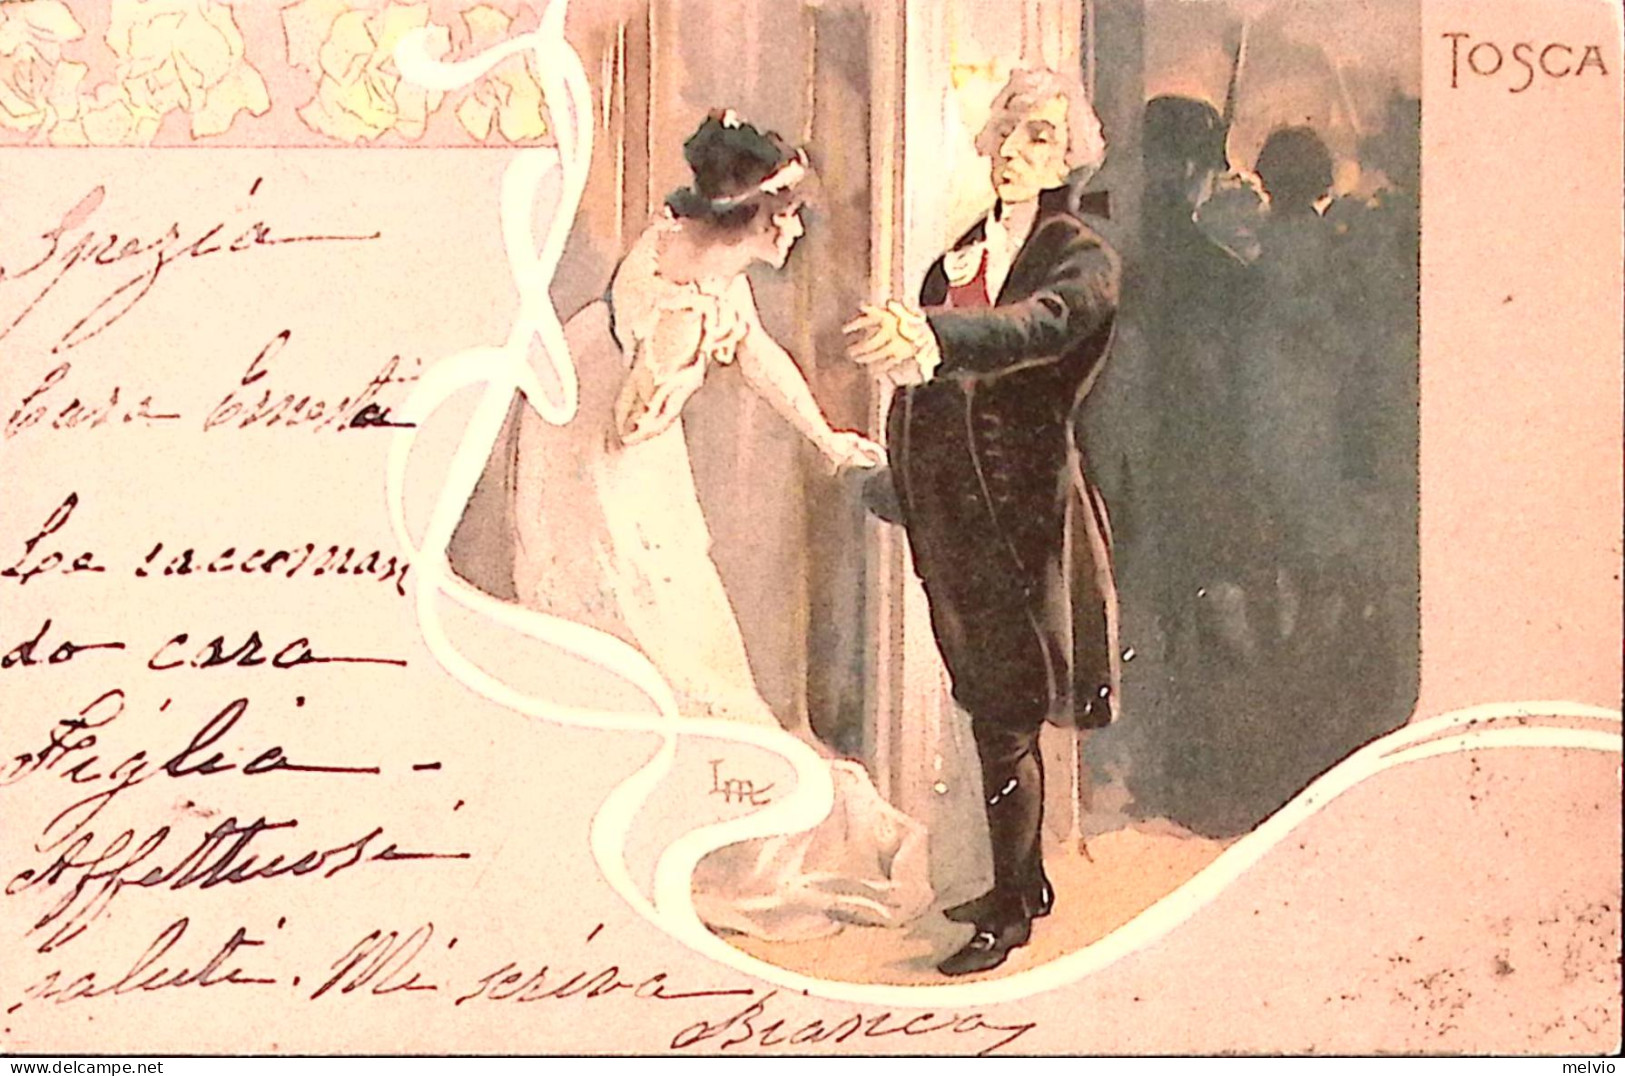 TOSCA
Spezia
Cara Ernesta
Le raccoman
do cara
Figlia -
Affettuosi
saluti. Mi scriva
Bianca
LM
delcampe.net
melvio